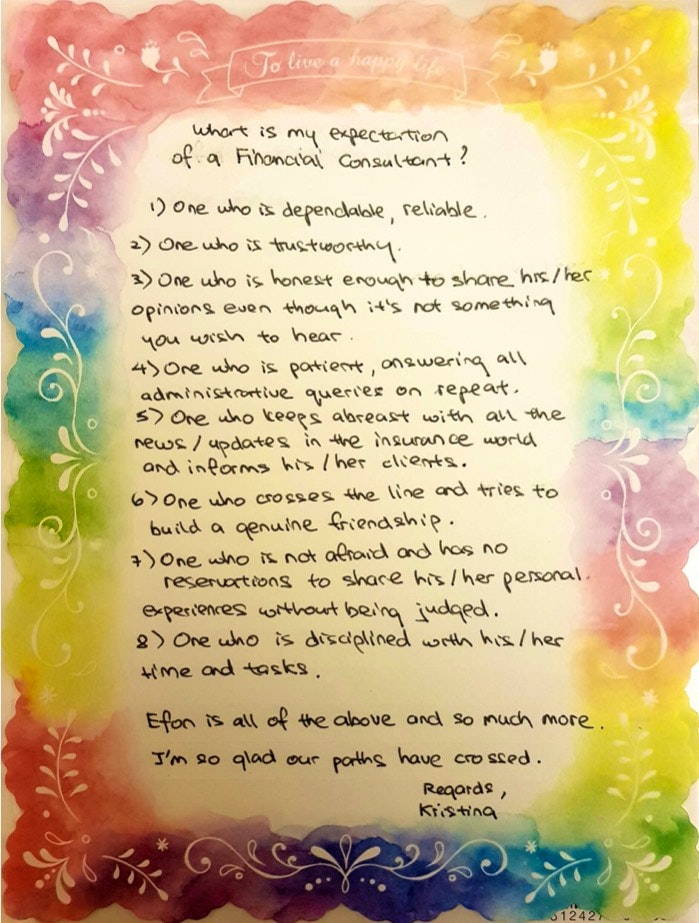 To live a happy life
What is my expectation
of a Financial Consultant?
1) One who is dependable, reliable.
2) One who is trustworthy.
3) One who is honest enough to share his/her
opinions even though it's not something
you wish to hear.
4) One who is patient, answering all
administrative queries on repeat.
5) One who keeps abreast with all the
news/updates in the insurance world
and informs his/her clients.
6) One who crosses the line and tries to
build a genuine friendship.
7) One who is not afraid and has no
reservations to share his/her personal.
experiences without being judged.
8) One who is disciplined with his/her
time and tasks.
Efon is all of the above and so much more.
I'm so glad our paths have crossed.
Regards,
Kristina